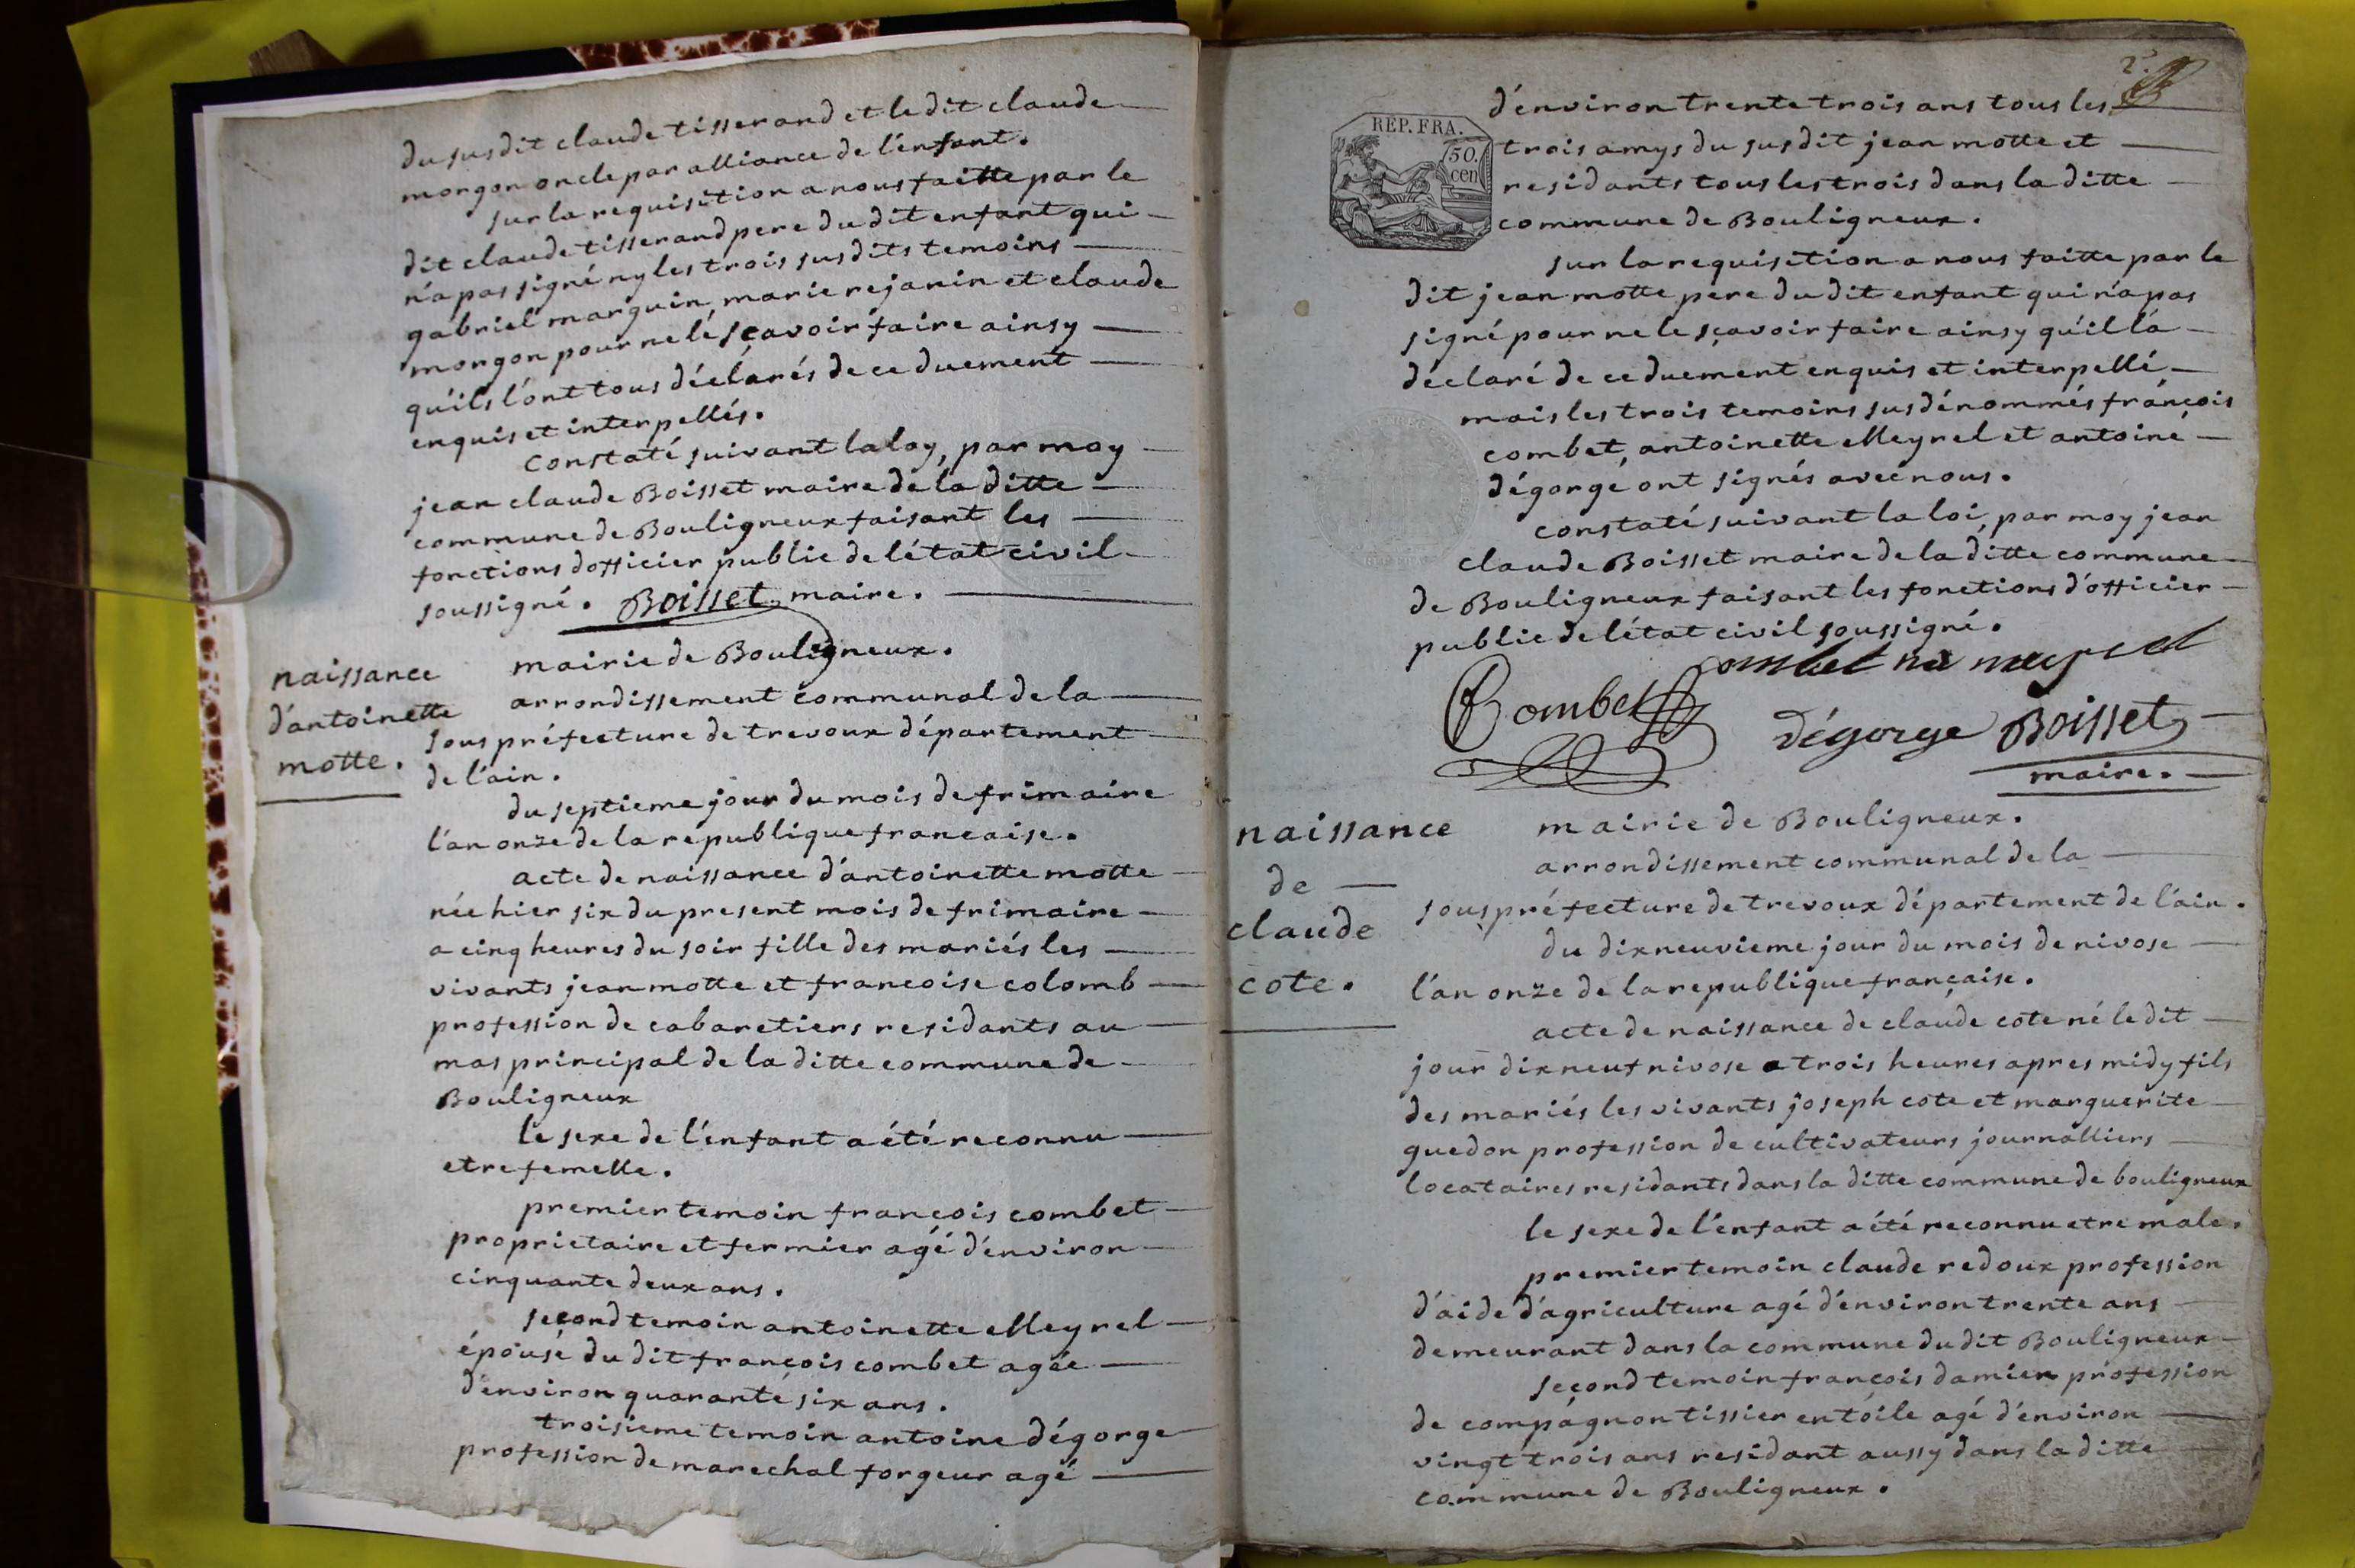 du susdit claude tisserand et le dit claude
morgon oncle par alliance de l'enfant.
sur la requisition a nous faitte par le
dit claude tisserand pere du dit enfant qui
n'a pas signé ny les trois susdits temoins
gabriel marguin, marie rejanin et claude
morgon pour ne le sçavoir faire ainsy
qu'ils l'ont tous déclarés de ce duement
enquis et interpellés.
constaté suivant la loy, par moy
jean claude Boisset maire de la ditte
commune de Bouligneux faisant les
fonctions d'officier public de l'état civil
soussigné. Boisset maire.
naissance
d'antoinette
motte.
mairie de Bouligneux.
arrondissement communal de la
sous préfecture de trevoux département
de l'ain.
du septieme jour du mois de frimaire
l'an onze de la republique francaise.
acte de naissance d'antoinette motte
née hier six du present mois de frimaire
a cinq heures du soir fille des mariés les
vivants jean motte et francoise colomb
profession de cabaretiers residants au
mas principal de la ditte commune de
Bouligneux
le sexe de l'enfant a été reconnu
etre femelle.
premier temoin françois combet
proprietaire et fermier agé d'environ
cinquante deux ans.
second temoin antoinette Meyrel
épouse du dit françois combet agée
d'environ quarante six ans.
troisieme temoin antoine dégorge
profession de marechal forgeur agé
2.
d'environ trente trois ans tous les
REP. FRA.
50.
cen
trois amys du susdit jean motte et
residants tous les trois dans la ditte
commune de Bouligneux.
sur la requisition a nous faitte par le
dit jean motte pere du dit enfant qui n'a pas
signé pour ne le sçavoir faire ainsy qu'il l'a
déclaré de ce duement enquis et interpellé,
mais les trois temoins susdénommés françois
combet, antoinette Meyrel et antoine
dégorge ont signés avec nous.
constaté suivant la loi, par moy jean
claude Boisset maire de la ditte commune
de Bouligneux faisant les fonctions d'officier
public de l'état civil soussigné.
combet né meyrel
Combet
dégorge Boisset
maire.
naissance
de
claude
cote.
mairie de Bouligneux.
arrondissement communal de la
sous préfecture de trevoux département de l'ain.
du dixneuvieme jour du mois de nivose
l'an onze de la republique française.
acte de naissance de claude cote né le dit
jour dixneuf nivose a trois heures apres midy fils
des mariés les vivants joseph cote et marguerite
guedon profession de cultivateurs journalliers
locataires residants dans la ditte commune de bouligneux
le sexe de l'enfant a été reconnu etre male.
premier temoin claude redoux profession
d'aide d'agriculture agé d'environ trente ans
demeurant dans la commune du dit Bouligneux
second temoin françois damien profession
de compagnon tissier en toile agé d'environ
vingt trois ans residant aussy dans la ditte
commune de Bouligneux.